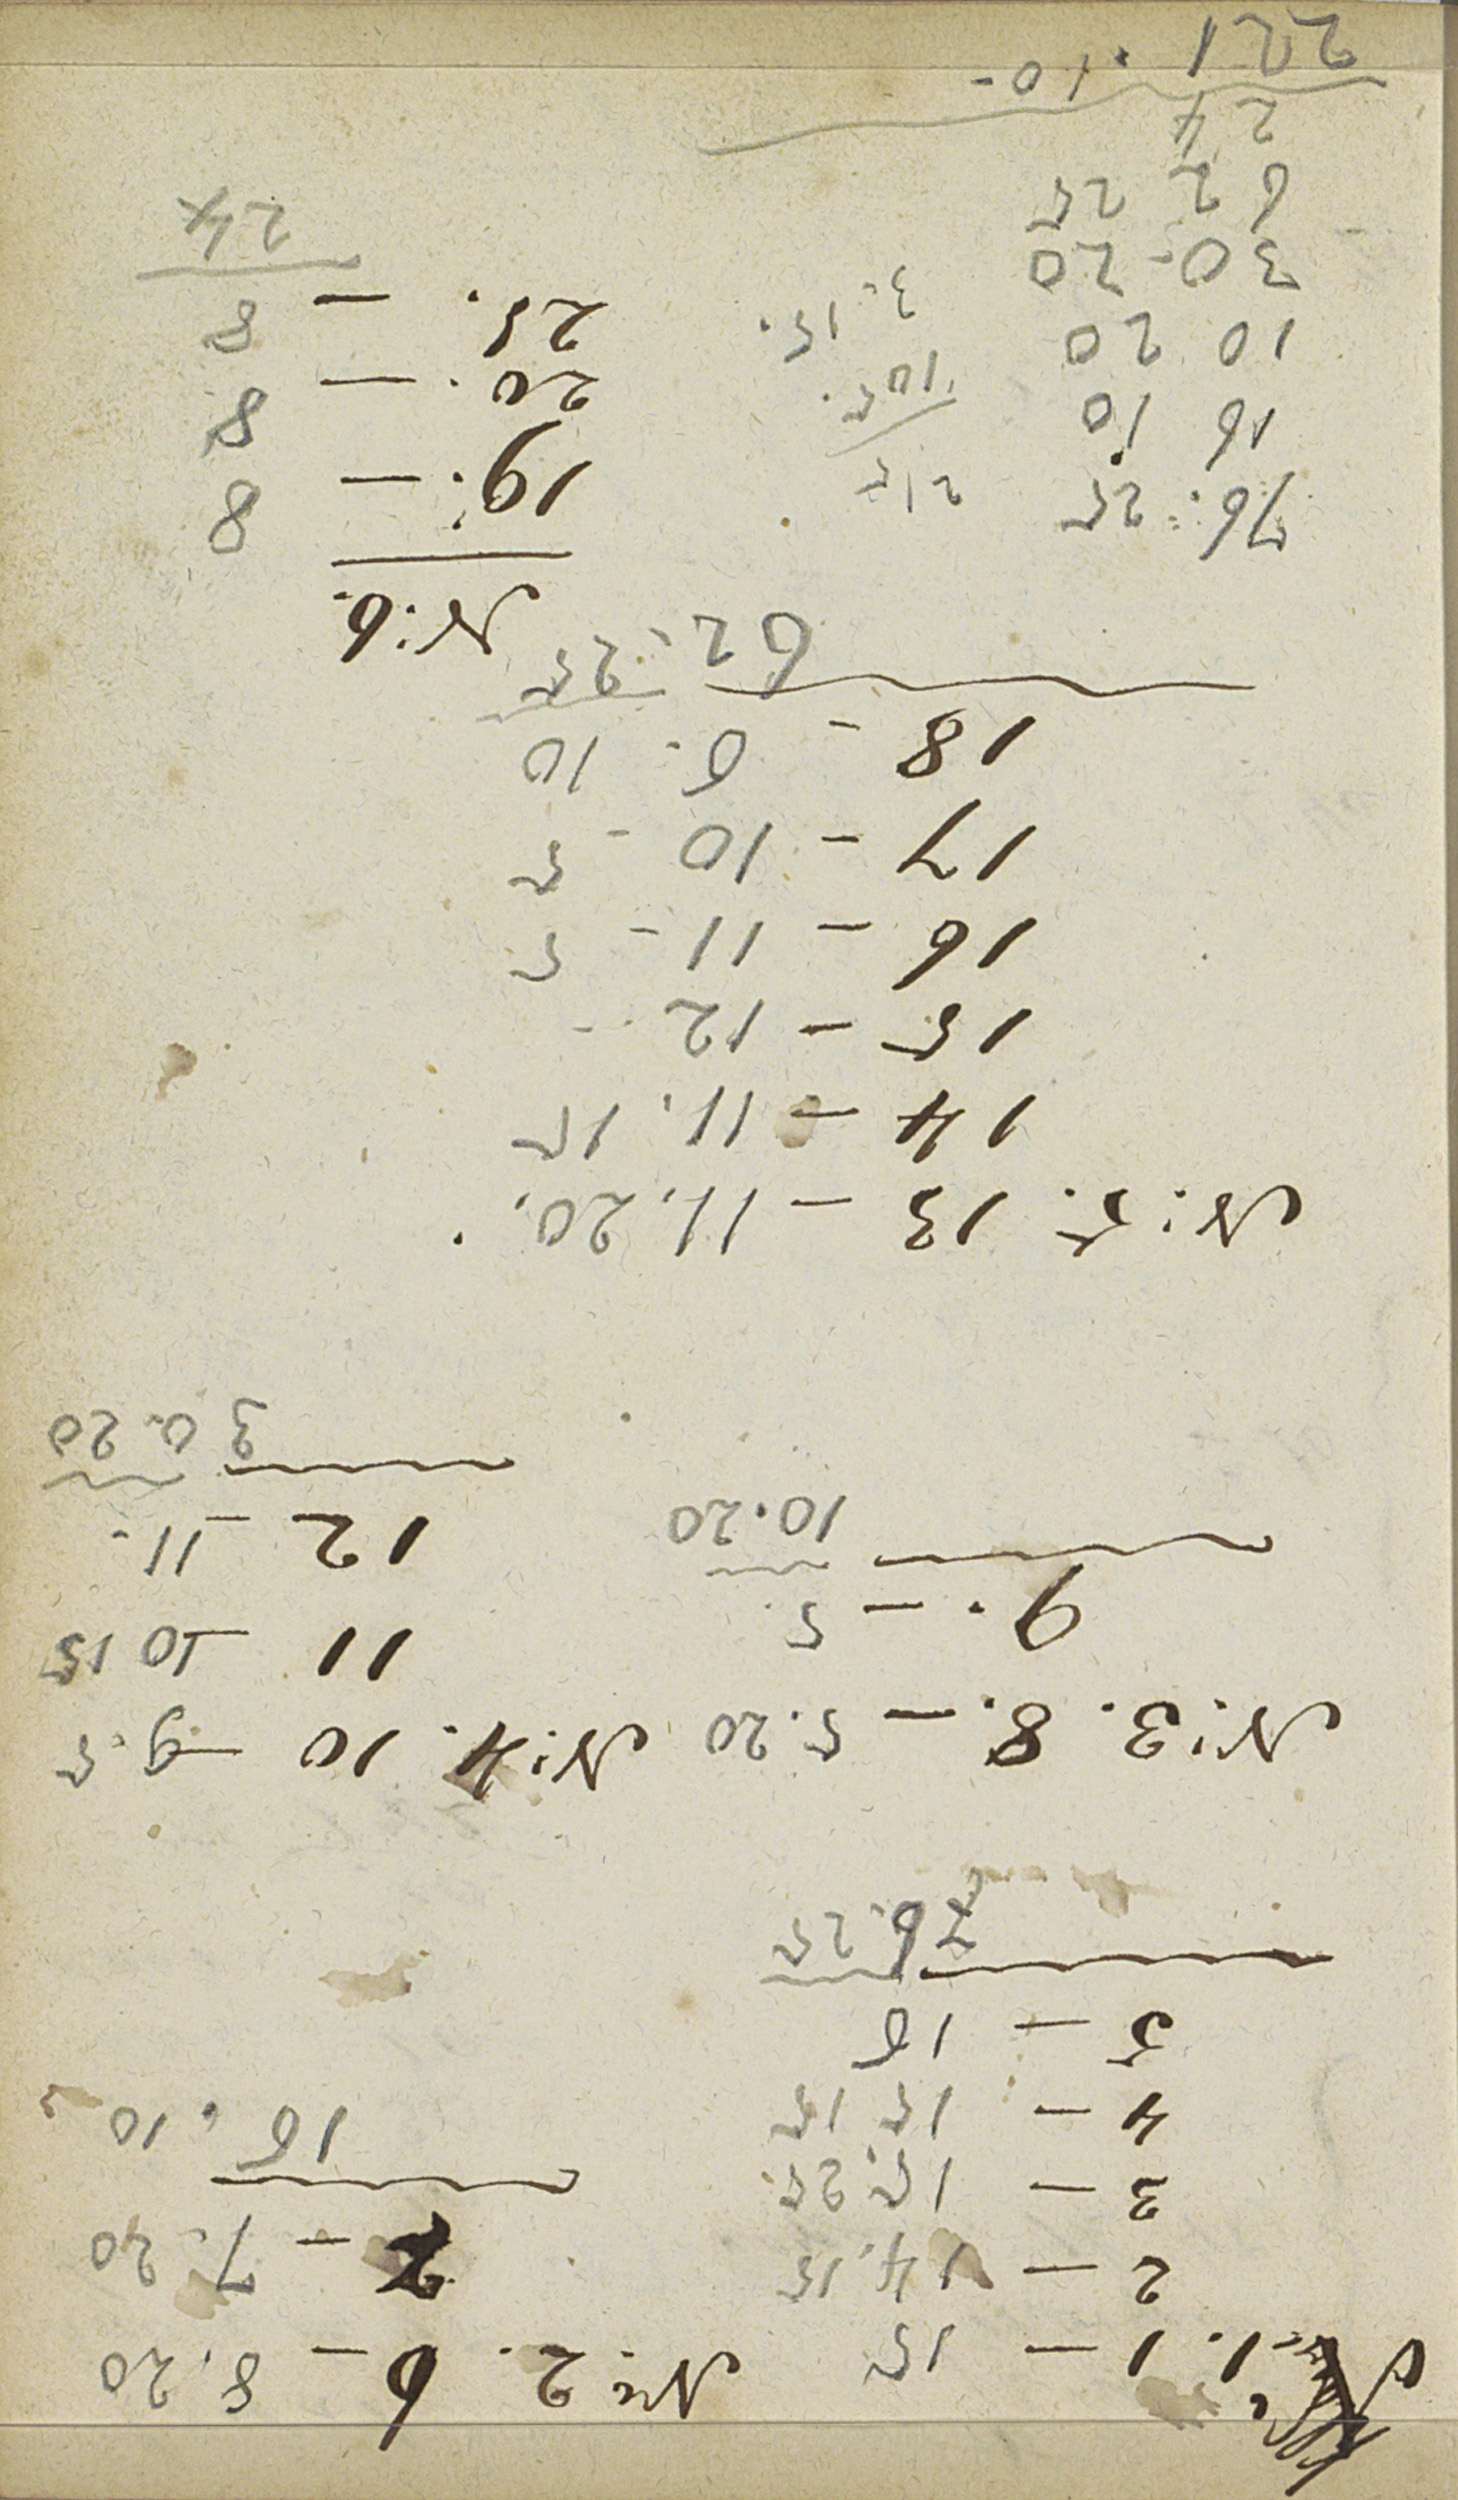 N: 1. 1 — 15
2 — 14.15
3 — 15.25
4 — 15 15
5 — 16
76.25
N: 2. 6 — 8.20
7 — 7.20
16.10
N: 3. 8. — 5.20
9. — 5
10.20
N: 4. 10 — 9.5
11 — 10 15
12 — 11.
30.20
N: 5. 13 — 11.20.
14 — 11.15
15 — 12 -
16 — 11 - 5
17 - 10 - 5
18 - 6. 10
62.25
N: 6.
19. — 8
20. — 8
21. — 8
24
76. 25
16 10
10 20
30 - 20
62 25
24
221. 10 -
215
105.
3.15.